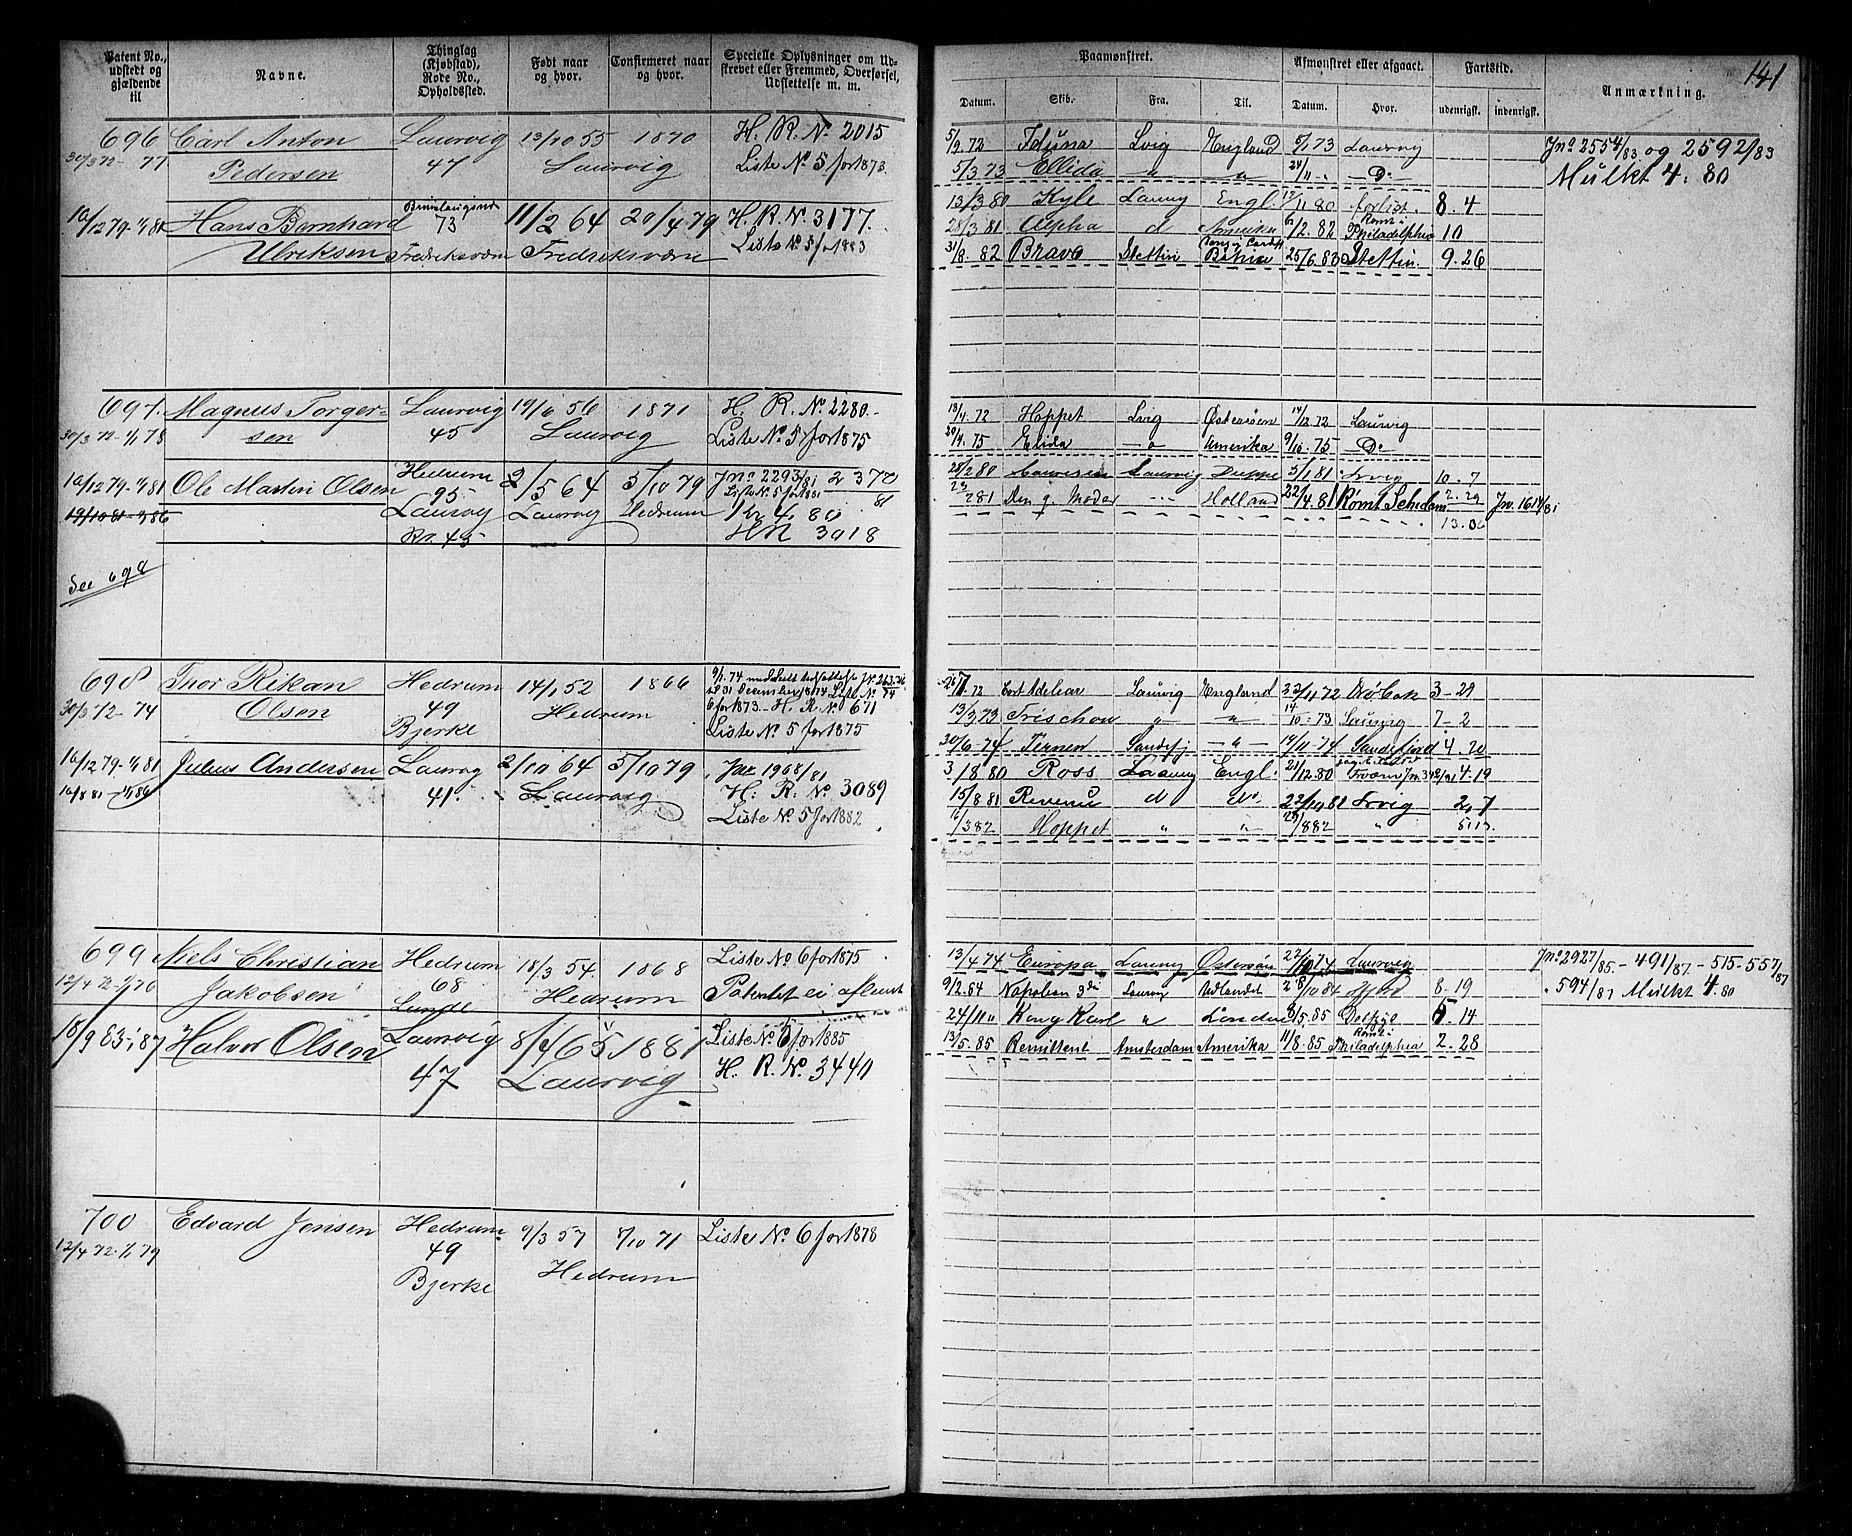 141
Patent No., udstedt og gjældende til
Navne.
Thinglag (Kjøbstad), Rode No., Opholdssted.
Født naar og hvor.
Confirmeret naar og hvor.
Specielle Oplysninger om Udskrevet eller Fremmed, Overførsel, Udslettelse m. m.
Paamønstret.
Datum. Skib. Fra. Til.
Afmønstret eller afgaaet.
Datum. Hvor.
Fartstid.
udenrigsk. indenrigsk.
Anmærkning.
696 Carl Anton Laurvig 13/10 55 1870 H. R. No 2015
30/3 72 - 77 Pedersen 47 Laurvig Liste No 5 for 1873.
16/12 79 - 1/1 81 Hans Bernhard 73 11/2 64 20/4 79 H. R. No 3177.
Ulriksen Fredriksværn Fredriksværn Liste No 5 for 1883
5/2 72 Iduna Lvig England 73 Laurvig
Jno 2554/83 og 2592/83
5/3 73 Ellida " " Do
Mulkt 4. 80
13/3 80 Kyle Laurvig Engl. 80 forlist. 8. 4
28/3 81 Alpha d Amerika 6/12. 82 Philadelphia 10
31/8. 82 Bravo Stettin 25/6. 83 Stettin. 9. 26
697. Magnus Torger- Laurvig 19/6 56 1871 H. R. No 2280.
30/3 72 - 1/1 78 sen 45 Laurvig Liste No 5 for 1875
16/12 79 - 1/1 81 Ole Martin Olsen Hedrum 95 2/5 64 5/10 79 Jno 2293/81 2370/81
Liste No 5 for 1881
19/10 81 - 1/1 86 Laurvig Laurvig Hedrum 1 Kr 4. 80
Rn. 45 HR 3018
See 698
13/4. 72 Hoppet Lvig Østersøen 14/12 72 Laurvig
20/4. 75 Elida - " Amerika 9/10. 75 Do
28/2 80 Laurvig Dieppe 5/1 81 Lrvig 10. 7
Den g. Moder Holland 22/4. 81 Rømt Schidam 2. 29
13. 06
698 Thor Rikan Hedrum 14/1 52 1866
30/3 72 - 74 Olsen 49 Hedrum 6 for 1873 - H. R. No 671
Bjerke Liste No 5 for 1875
16/12 79 - 1/1 81 Julius Andersen Laurvig 2/10 64 5/10 79 Jno 1968/81
16/8 81 - 1/1 86 41. Laurvig H. R. No 3089
Liste No 5 for 1882
Cort Adelaer Laurvig England 22/11 72 3 - 29
13/3 73 Laurvig 7 - 2
30/6 - 74 Ternen Sandefj - " - 14/11 - 74 Sandefjord 4. 20
3/8 80 Ross Laurvig Engl. 21/12. 80 4. 19
15/8 81 Revenu d do. Lrvig 2, 7
16/3 82 Hoppet " " 29/8 82 " 5, 13.
699 Niels Christian Hedrum 18/3 54. 1868 Liste No 6 for 1875
12/4 72 - 1/1 76 Jakobsen 68 Hedrum Patentet ei afhent
Lunde
18/9 83 - 87 Halvor Olsen Laurvig 8/4 65. 1881 Liste No 6 for 1885
47 Laurvig H. R. No. 3440
13/4 74 Europa Laurvig Østersøen 22/10 74 Laurvig
Jno 2927/85. - 491/87. - 515 - 557/87
9/2. 84 Napoleon 3die Laurvig Udlandet 84 8 - 19
. 594/87 Mulkt 4. 80
24/11 " Kong Karl " London 85 5. 14
13/5. 85 Remittent Amsterdam Amerika 11/8. 85 Rømt i Philadelphia 2. 28
700 Edvard Jensen Hedrum 9/3 57 7/10 71 Liste No 6 for 1878
12/4 72 - 1/1 79 49 Hedrum
Bjerke